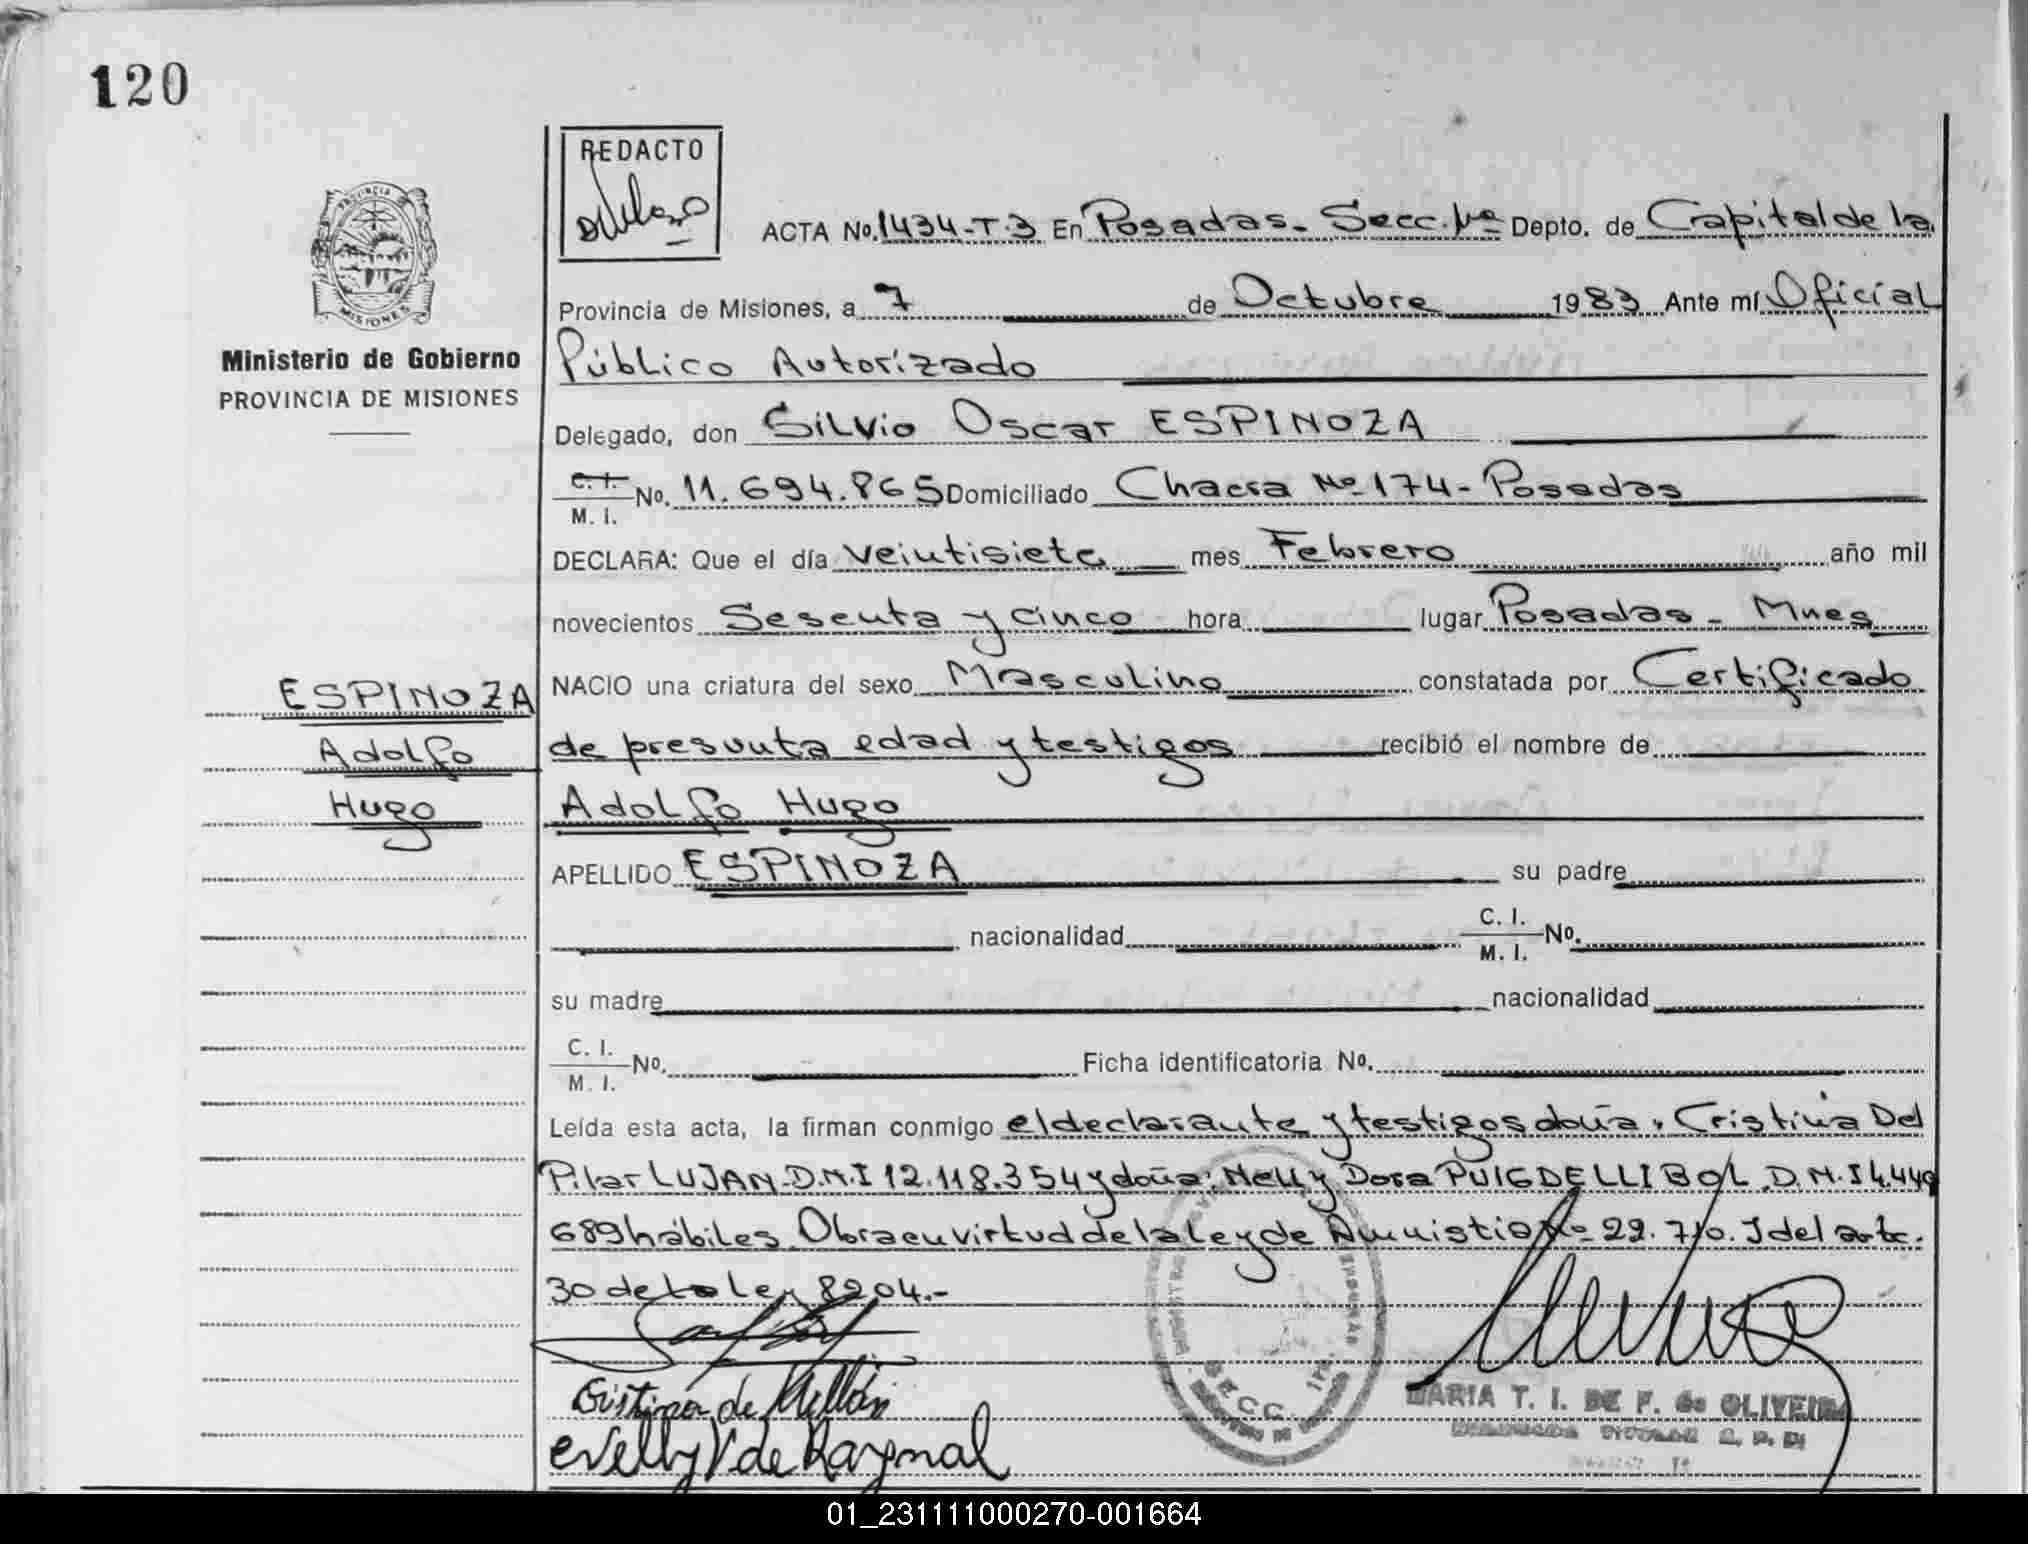 120
REDACTO
PROVINCIA
MISIONES
Ministerio de Gobierno
PROVINCIA DE MISIONES
ACTA No. 1434-T.3 En Posadas - Secc. 1ª Depto. de Capital de la
Provincia de Misiones, a 7 de Octubre 1983 Ante mí Oficial
Público Autorizado
Delegado, don Silvio Oscar ESPINOZA
C. I.
M. I. No. 11.694.865 Domiciliado Chacra Nº 174 - Posadas
DECLARA: Que el día veintisiete mes Febrero año mil
novecientos Sesenta y cinco hora lugar Posadas - Mnes
NACIO una criatura del sexo Masculino constatada por Certificado
de presunta edad y testigos recibió el nombre de
Adolfo Hugo
ESPINOZA
Adolfo
Hugo
APELLIDO ESPINOZA su padre
nacionalidad C. I.
M. I. No.
su madre nacionalidad
C. I.
M. I. No. Ficha identificatoria No.
Leída esta acta, la firman conmigo el declarante y testigos doña: Cristina Del
Pilar LUJAN - D.N.I 12.118.354 y doña: Nelly Dora PUIGDELLIBOL D.N.I 4.449
689 hábiles. Obra en virtud de la Ley de Amnistia Nº 22.710. I del arte.
30 de la Ley 8204.-
Cristina de Millán
Nelly V de Raymal
SECC. 1ra.
MARIA T. I. DE F. de OLIVEIRA
01_231111000270-001664